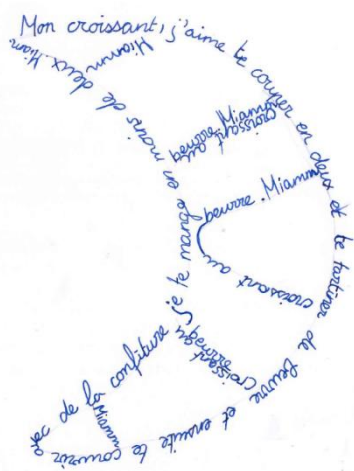 Mon croissant, j'aime te couper en deux et te tartiner de beurre et ensuite te couvrir avec de la confiture je te mange en moins de deux. Miam
Miamm
Miamm
croissant au
beurre
croissant au
beurre. Miamm
croissant
au beurre
Miamm